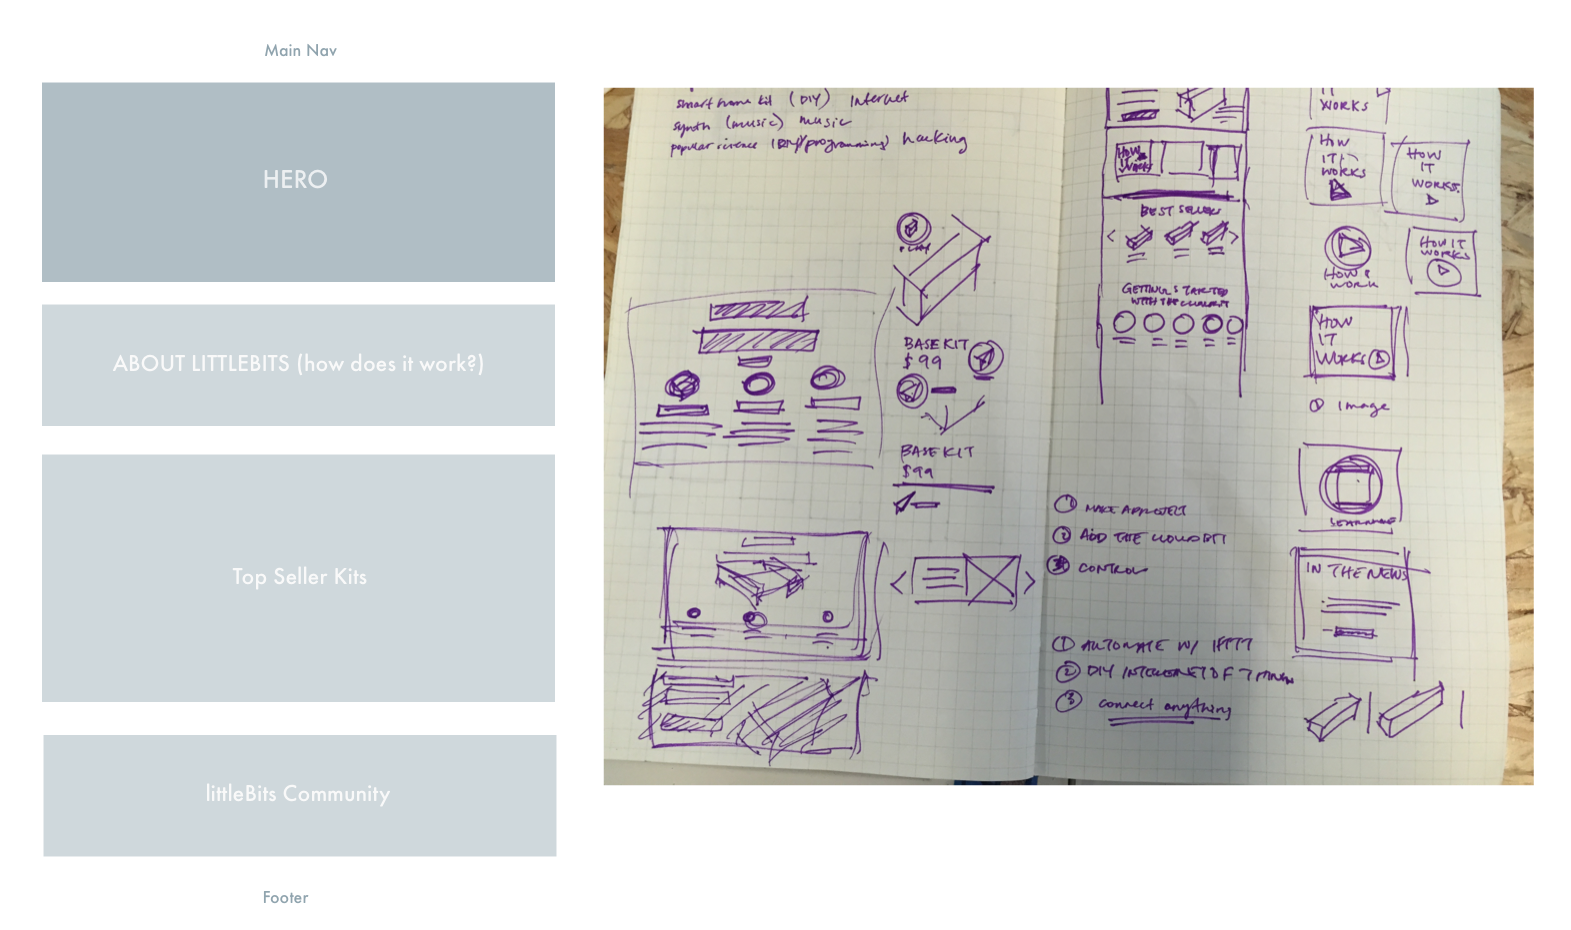 Main Nav
HERO
ABOUT LITTLEBITS (how does it work?)
Top Seller Kits
littleBits Community
Footer
smart home kit (DIY) Internet
synth (music) music
popular science (DIY/programming) hacking
BASE KIT
$99
BASE KIT
$99
HOW
IT
WORKS
BEST SELLERS
GETTING STARTED
WITH THE
① MAKE A PROJECT
② ADD THE CLOUDBIT
③ CONTROL
① AUTOMATE W/ IFTTT
② DIY INTERNET OF THINGS
③ connect anything
IT
WORKS
HOW
IT
WORKS
HOW
IT
WORKS
HOW IT
WORK
HOW IT
WORKS
HOW
IT
WORKS
① Image
IN THE NEWS